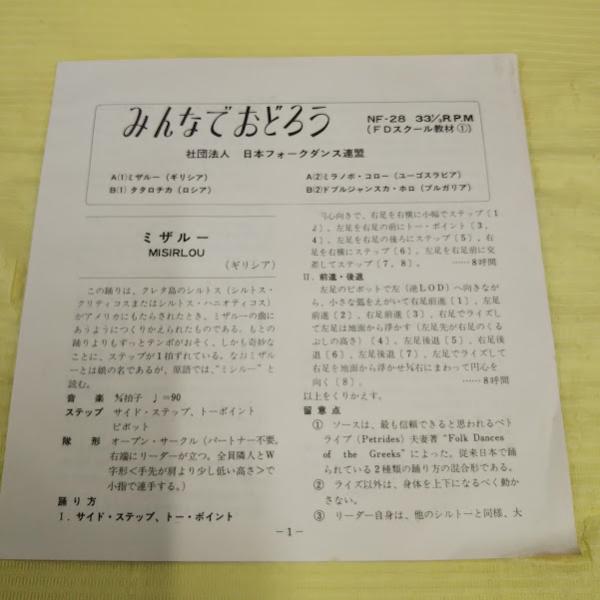 みんなでおどろう
NF-28 33⅓R.P.M
(FDスクール教材①)
社団法人 日本フォークダンス連盟
A(1)ミザルー(ギリシア)
A(2)ミラノボ・コロー(ユーゴスラビア)
B(1)タタロチカ(ロシア)
B(2)ドブルジャンスカ・ホロ(ブルガリア)
ミザルー
MISIRLOU
(ギリシア)
この踊りは、クレタ島のシルトス(シルトス・
クリティコスまたはシルトス・ハニオティコス)
がアメリカにもたらされたとき、ミザルーの曲に
あうようにつくりかえられたものである。もとの
踊りよりもずっとテンポがおそく、しかも奇妙な
ことに、ステップが1拍ずれている。なおミザル
ーとは娘の名であるが、原語では、"ミシルー"と
読む。
音楽 拍子 ♩=90
ステップ サイド・ステップ、トーポイント
ピボット
隊形 オープン・サークル(パートナー不要。
右端にリーダーが立つ。全員隣人とW
字形<手先が肩より少し低い高さ>で
小指で連手する。)
踊り方
I. サイド・ステップ、トー・ポイント
円心向きで、右足を右横に小幅でステップ(1
2)、左足を右足の前にトー・ポイント(3、
4)、左足を右足の後ろにステップ(5)、右
足を右横にステップ(6)、左足を右足前に交
差してステップ(7、8)。 ……8呼間
II. 前進・後退
左足のピボットで左(逆LOD)へ向きなが
ら、小さな弧をえがいて右足前進(1)、左足
前進(2)、右足前進(3)、右足でライズし
て左足は地面から浮かす(左足先が右足のくる
ぶしの高さ)(4)、左足後退(5)、右足後
退(6)、左足後退(7)、左足でライズして
右足を地面から浮かせ右にまわって円心を
向く(8)。 ……8呼間
以上をくりかえす。
留意点
① ソースは、最も信頼できると思われるペト
ライブ(Petrides)夫妻著"Folk Dances
of the Greeks"によった。従来日本で踊
られている2種類の踊り方の混合形である。
② ライズ以外は、身体を上下になるべく動か
さない。
③ リーダー自身は、他のシルトーと同様、大
－1－